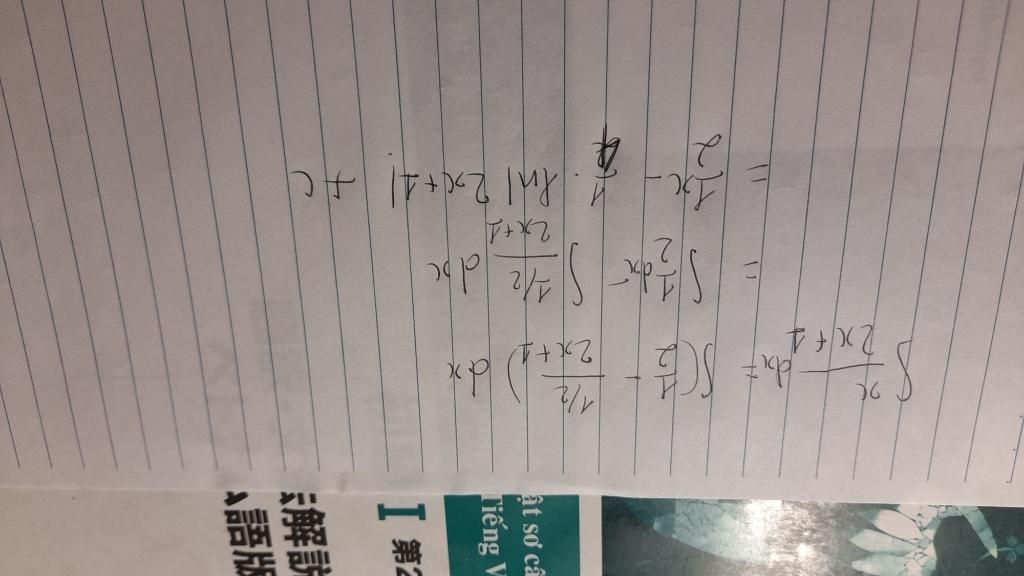 ∫ x/(2x+1) dx = ∫ (1/2 - (1/2)/(2x+1)) dx
= ∫ 1/2 dx - ∫ (1/2)/(2x+1) dx
= 1/2 x - 1/4 . ln|2x+1| + c
ật sơ cấ
Tiếng V
I 第2
解説
語版